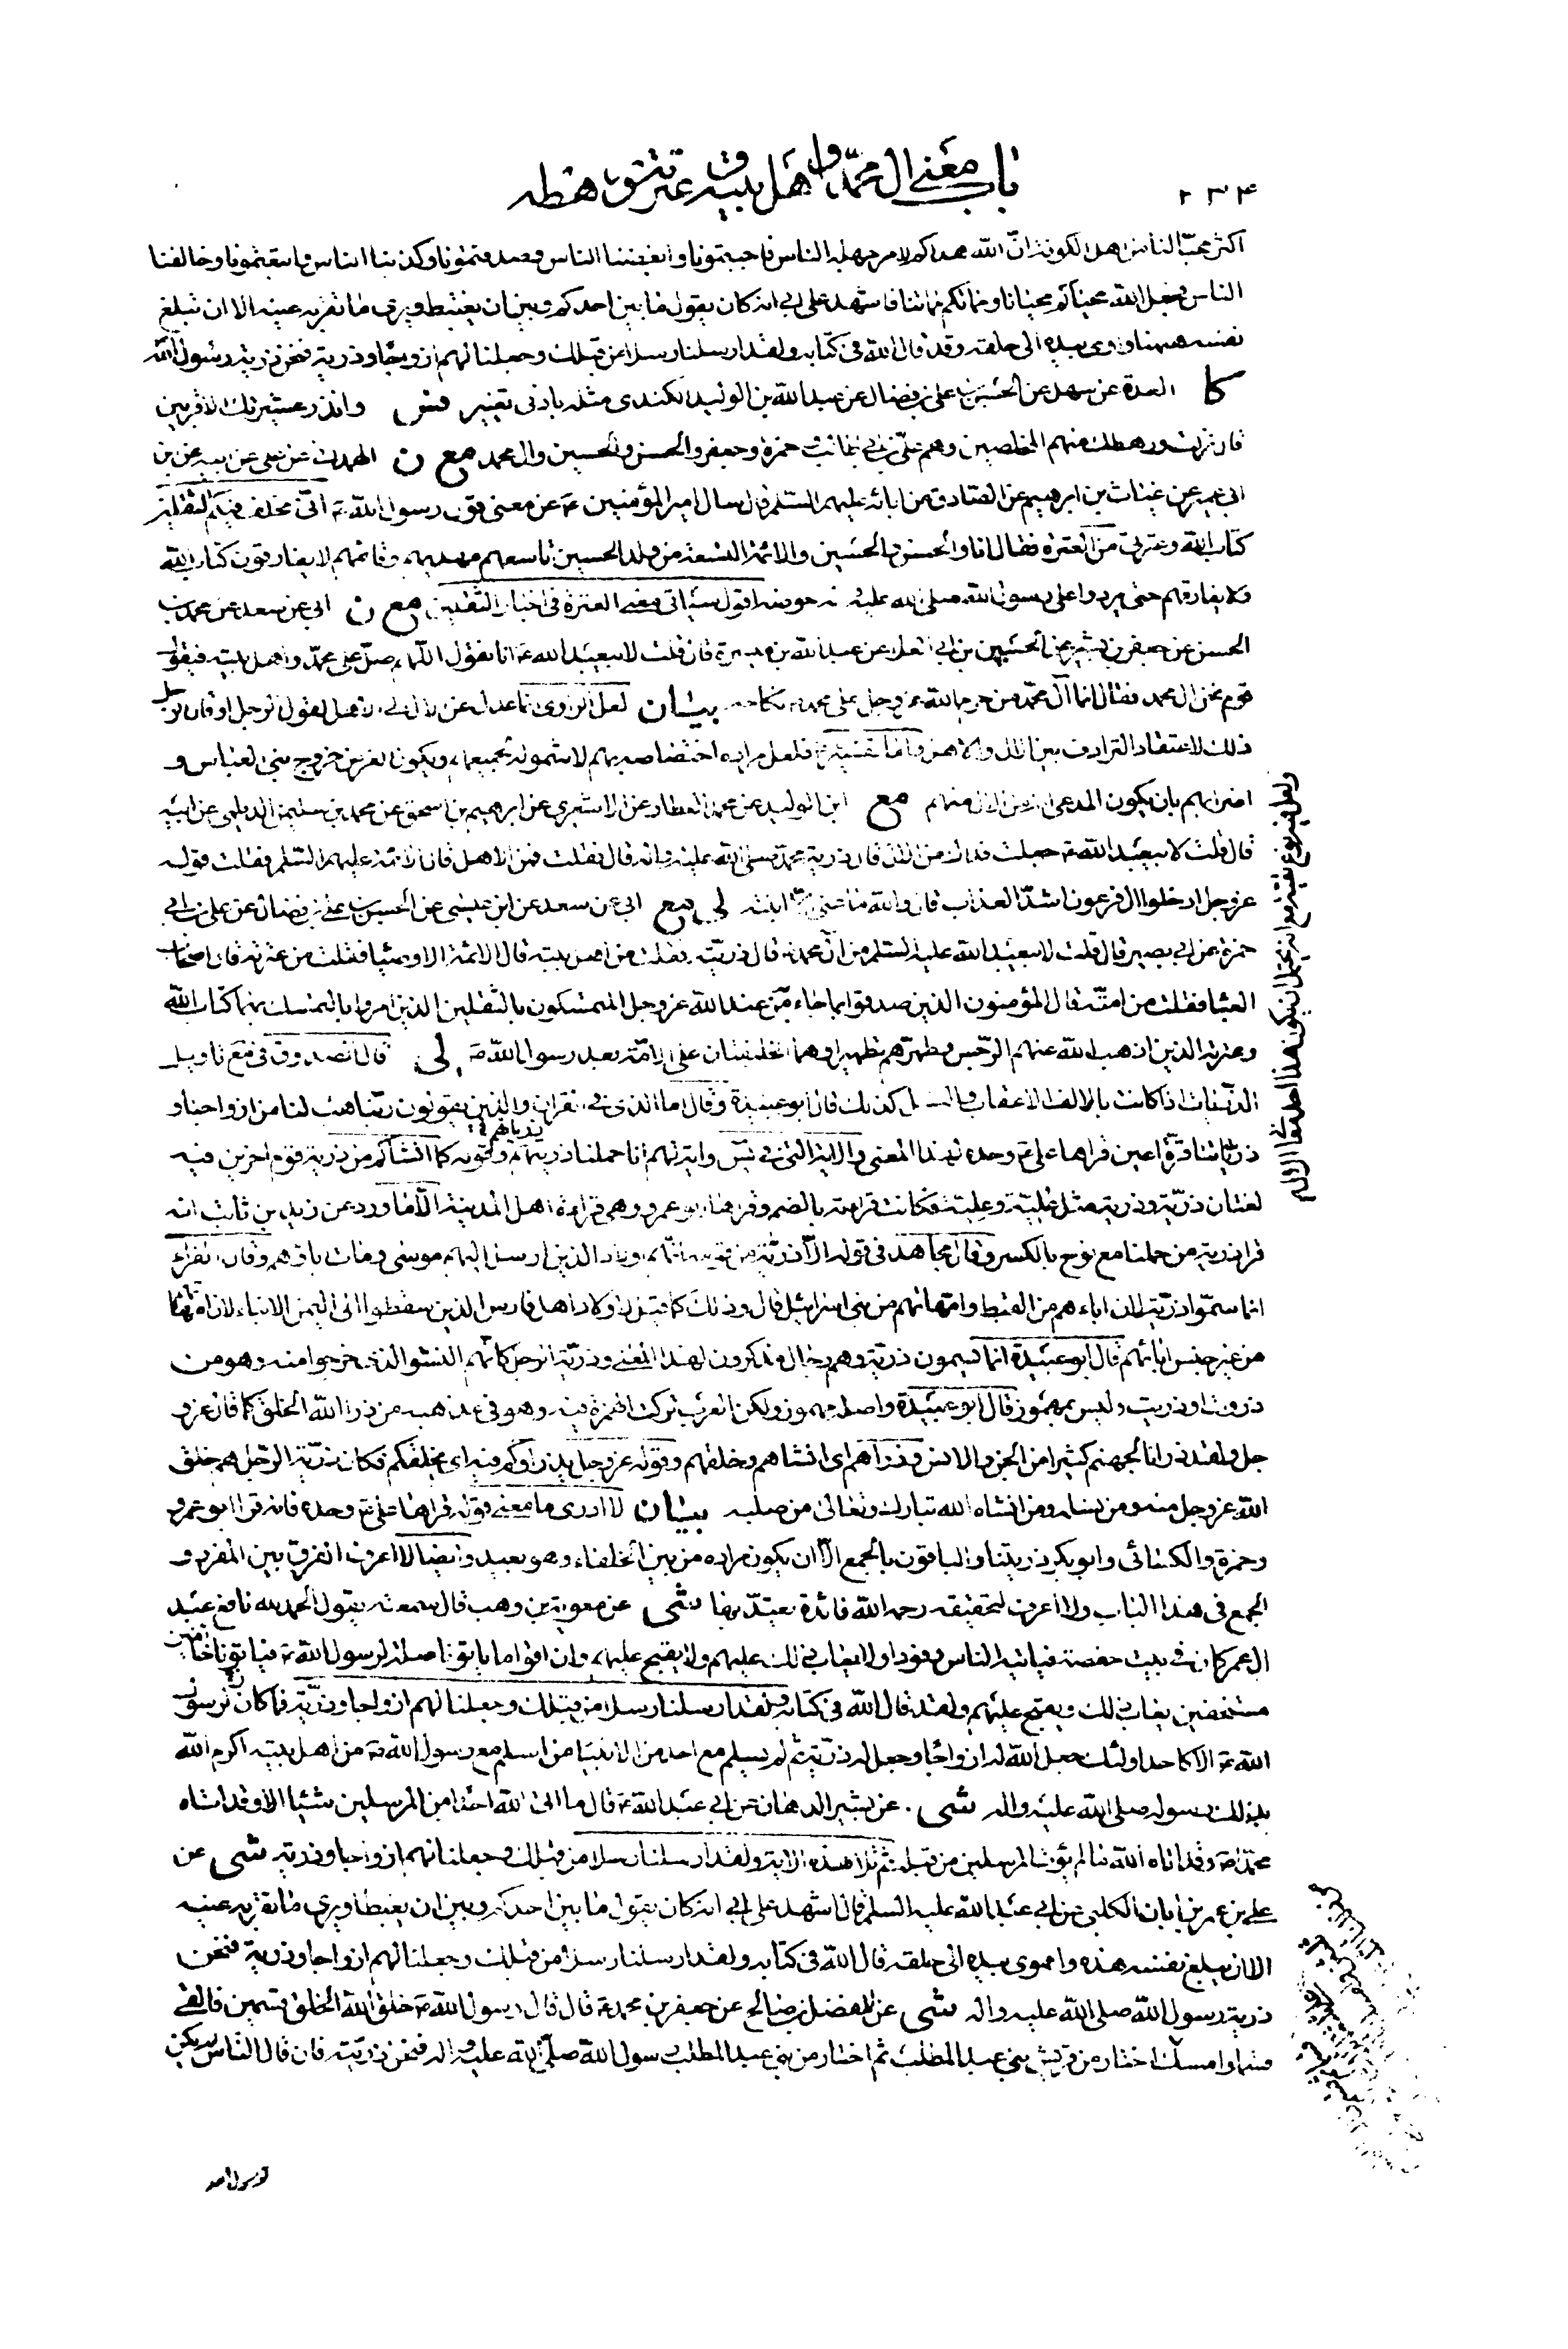 ٢٣٤
باب معنى ال محمد واهل بيته وعترته ورهطه
اكثر محبّا للناس اهل الكوفة انّ الله هداكم لامر جهله الناس فاحببتمونا وابغضنا الناس وصدقتمونا وكذبنا الناس واتبعتمونا وخالفنا
الناس فجعل الله محياكم محيانا ومماتكم مماتنا فاشهد على ابي انه كان يقول ما بين احدكم وبين ان يغتبط ويرى ما تقر به عينه الا ان تبلغ
نفسه ههنا واومى بيده الى حلقه وقد قال الله في كتابه ولقد ارسلنا رسلا من قبلك وجعلنا لهم ازواجا وذرية فنحن ذرية رسول الله
كا العدة عن سهل عن الحسن بن علي بن فضال عن عبد الله بن الوليد الكندي مثله بادنى تغيير فس وانذر عشيرتك الاقربين
قال نزلت ورهطك منهم المخلصين وهم علي بن ابي طالب حمزة وجعفر والحسن والحسين وال محمد مع ن الهمداني عن علي عن ابيه عن ابن
ابي عمير عن غياث بن ابراهيم عن الصادق عن ابائه عليهم السلم قال سال امير المؤمنين ع عن معنى قول رسول الله ص اني مخلف فيكم الثقلين
كتاب الله وعترتي من العترة فقال انا والحسن والحسين والائمة التسعة من ولد الحسين تاسعهم مهديهم وقائمهم لا يفارقون كتاب الله
ولا يفارقهم حتى يردوا على رسول الله صلى الله عليه واله حوضه اقول سياتي معنى العترة في اخبار الثقلين مع ن ابي عن سعد عن محمد بن
الحسن عن جعفر بن بشير عن الحسين بن ابي العلا عن عبد الله بن ميسرة قال قلت لابي عبد الله ع انا نقول اللهم صل على محمد واهل بيته فيقول
قوم نحن ال محمد فقال انما آل محمد من حرم الله عز وجل على محمد ص نكاحه بيان لعل الراوي انما عدل عن الال الى الاهل لقول الرجل او قال الرجل
ذلك لاعتقاد الترادف بين الال والاهل واما تفسيره ع فلعل مراده اختصاصه بهم لا شموله لجميعهم ويكون الغرض خروج بني العباس و
اضرابهم بان يكون المدعى انه من الال منهم مع ابن الوليد عن محمد العطار عن الاشعري عن ابرهيم بن اسحق عن محمد بن سليمن الديلمي عن ابيه
قال قلت لابي عبد الله ع جعلت فداك من الال قال ذرية محمد صلى الله عليه واله قال فقلت فمن الاهل قال الائمة عليهم السلم فقلت قوله
عز وجل ادخلوا ال فرعون اشد العذاب قال والله ما عنى الا ابنته لي مع ابي عن سعد عن ابن عيسى عن الحسن بن علي بن فضال عن علي بن ابي
حمزة عن ابي بصير قال قلت لابي عبد الله عليه السلم من ال محمد قال ذريته فقلت من اهل بيته قال الائمة الاوصيا فقلت من عترته قال اصحاب
العبا فقلت من امته قال المؤمنون الذين صدقوا بما جاء به من عند الله عز وجل المتمسكون بالثقلين الذين امروا بالتمسك بهما كتاب الله
وعترته الذين اذهب الله عنهم الرجس وطهرهم تطهيرا وهما الخليفتان على الامة بعد رسول الله ص لي قال الصدوق في مع تاويل
الذريات اذا كانت بالالف الاعقاب والنسل كذلك قال ابو عبيدة وقال اما الذي في القران والذين يقولون ربنا هب لنا من ازواجنا و
ذرياتنا قرة اعين قراها علي ع وحده لهذا المعنى والاية التي في يس واية لهم انا حملنا ذريتهم وقوله كما انشاكم من ذرية قوم اخرين فيه
لغتان ذرية وذرية مثل علية وعلية فكانت قراءته بالضم وقراها ابو عمرو وهي قراءة اهل المدينة الا ما ورد عن زيد بن ثابت انه
قرا ذرية من حملنا مع نوح بالكسر وقال مجاهد في قوله الا ذرية من قومه انهم اولاد الذين ارسل اليهم موسى ومات اباؤهم وقال الفراء
انما سموا ذرية لان اباءهم من القبط وامهاتهم من بني اسرائيل قال وذلك كما قيل لاولاد اهل فارس الذين سقطوا الى اليمن الابناء لان امهاتهم
من غير جنس ابائهم قال ابو عبيدة انما يسمون ذرية وهم رجال مذكرون لهذا المعنى وذرية الرجل كانهم النشو الذي خرجوا منه وهو من
ذروت او ذريت وليس بمهموز قال ابو عبيدة واصله مهموز ولكن العرب تركت الهمزة فيه وهو في مذهبه من ذرا الله الخلق كما قال عز و
جل ولقد ذرانا لجهنم كثيرا من الجن والانس وذراهم اي انشاهم وخلقهم وقوله عز وجل يذراوكم فيه اي يخلقكم فكان ذرية الرجل هم خلق
الله عز وجل منه ومن نسله ومن انشاه الله تبارك وتعالى من صلبه بيان لا ادري ما معنى قوله قراها علي ع وحده فانه قرا ابو عمرو
وحمزة والكسائي وابو بكر ذريتنا والباقون بالجمع الا ان يكون مراده من بين الخلفاء وهو بعيد وايضا لا اعرف الفرق بين المفرد و
الجمع في هذا الباب ولا اعرف لتحقيقه رحمه الله فائدة يعتد بها شي عن معوية بن وهب قال سمعته يقول الحمد لله نافع عبد
ال عمر كان في بيت حفصة فياتيه الناس وفودا ولا يعاب ذلك عليهم ولا يقبح عليهم وان اقواما ياتونا صلة لرسول الله ص فياتونا خائفين
مستخفين يعاب ذلك ويقبح عليهم ولقد قال الله في كتابه ولقد ارسلنا رسلا من قبلك وجعلنا لهم ازواجا وذرية فما كان لرسول
الله ص الا كاحد اولئك جعل الله له ازواجا وجعل له ذرية ثم لم يسلم مع احد من الانبيا من اسلم مع رسول الله ص من اهل بيته اكرم الله
بذلك رسوله صلى الله عليه واله شي عن بشير الدهان عن ابي عبد الله ع قال ما اتى الله احدا من المرسلين شيئا الا وقد اتاه
محمدا ص وقد اتاه الله ما لم يؤت المرسلين من قبله ثم تلا هذه الاية ولقد ارسلنا رسلا من قبلك وجعلنا لهم ازواجا وذرية شي عن
علي بن عمر بن ابان الكلبي عن ابي عبد الله عليه السلم قال اشهد على ابي انه كان يقول ما بين احدكم وبين ان يغبط او يرى ما تقر به عينه
الا ان يبلغ نفسه هذه واهوى بيده الى حلقه قال الله في كتابه ولقد ارسلنا رسلا من قبلك وجعلنا لهم ازواجا وذرية فنحن
ذرية رسول الله صلى الله عليه واله شي عن المفضل بن صالح عن جعفر بن محمد ع قال قال رسول الله ص خلق الله الخلق قسمين فالقى
قسما وامسك اختار من قريش بني عبد المطلب ثم اختار من بني عبد المطلب رسول الله صلى الله عليه واله فنحن ذريته فان قال الناس لم يكن
لرسول الله